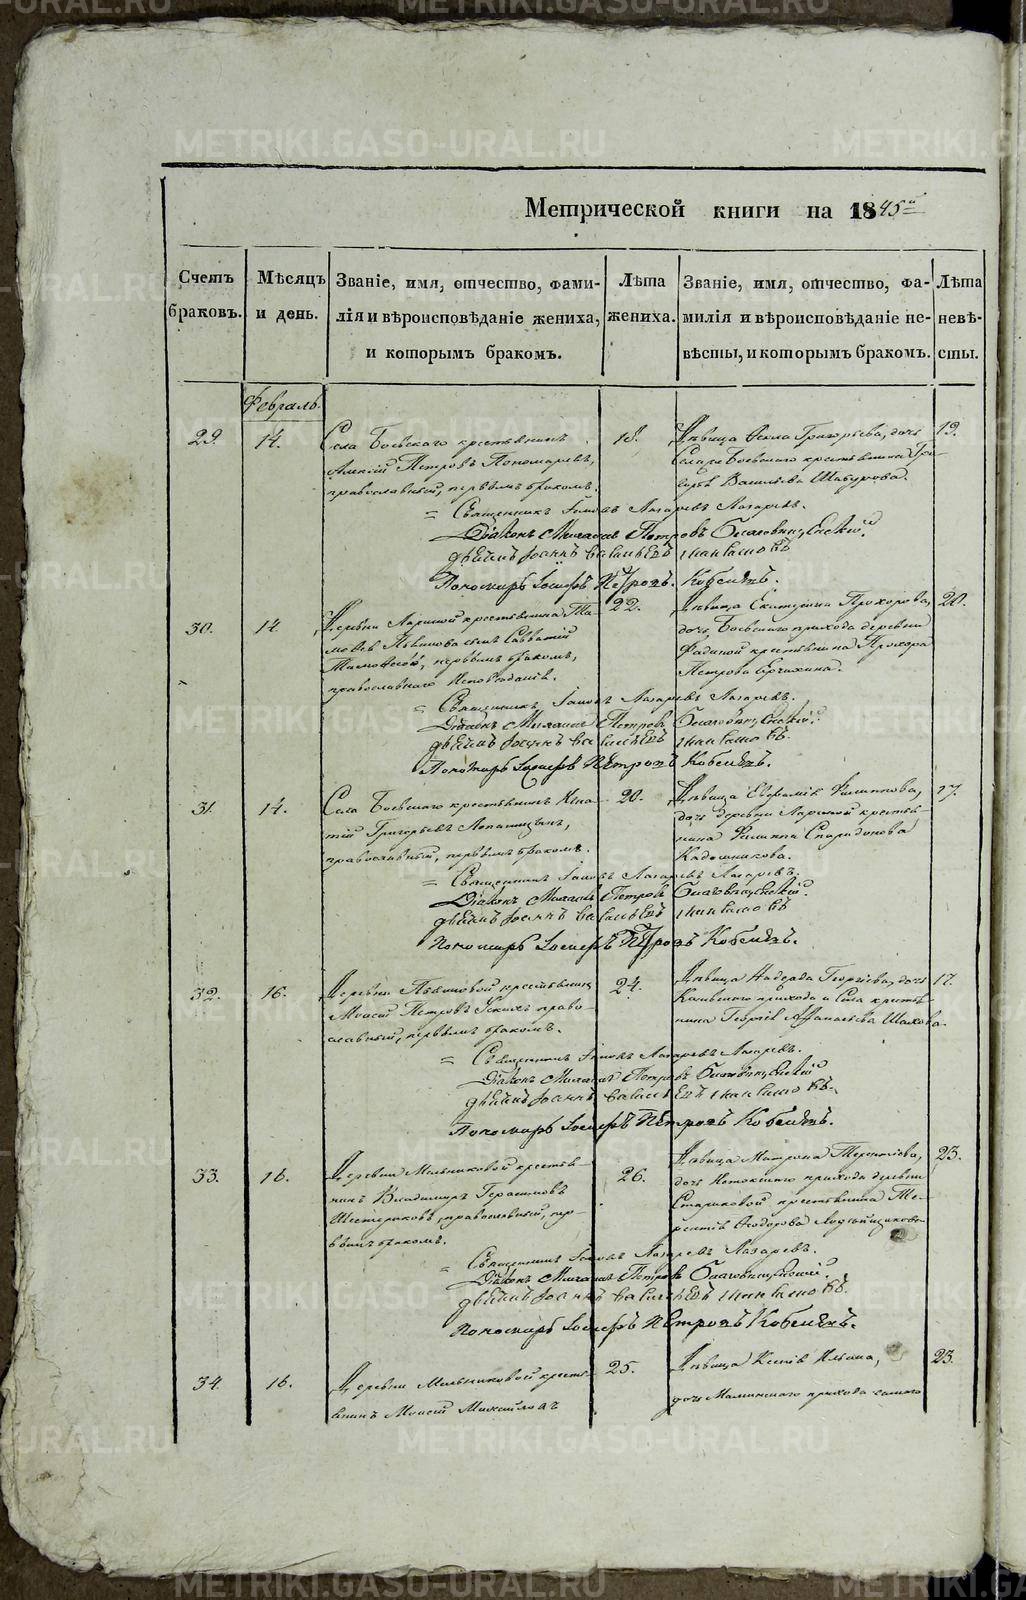 Метрической книги на 1845й
Счетъ браковъ.
Мѣсяцъ и день.
Званіе, имя, отчество, фами-
лія и вѣроисповѣданіе жениха,
и которымъ бракомъ.
Лѣта жениха.
Званіе, имя, отчество, фа-
милія и вѣроисповѣданіе не-
вѣсты, и которымъ бракомъ.
Лѣта невѣ-
сты.
Февраль.
29.
14.
Села Боевскаго крестьянинъ
Алексій Петровъ Пономаревъ,
православный, первымъ бракомъ.
18.
Дѣвица Ѳекла Григорьева, дочь
Села Боевскаго крестьянина Гри-
горья Васильева Шабурова.
19.
Священникъ Іаковъ Лазаревъ Лазаревъ.
Діаконъ Михаилъ Петровъ Благовѣщенскій.
Дьячокъ Іоаннъ Васильевъ
Пономарь Іосифъ Петровъ Кобелевъ.
30.
14.
Деревни Лариной крестьянина Ти-
моѳея сынъ Савватій
Тимоѳеевъ, первымъ бракомъ,
православнаго исповѣданія.
22.
Дѣвица Екатерина Прохорова,
дочь Боевскаго прихода деревни
Фадиной крестьянина Прохора
Петрова
20.
Священникъ Іаковъ Лазаревъ Лазаревъ.
Діаконъ Михаилъ Петровъ Благовѣщенскій.
Дьячокъ Іоаннъ Васильевъ
Пономарь Іосифъ Петровъ Кобелевъ.
31.
14.
Села Боевскаго крестьянинъ Игна-
тій Григорьевъ Лопатицынъ,
православный, первымъ бракомъ.
20.
Дѣвица Евфимія Филиппова,
дочь деревни Лариной крестья-
нина Филиппа Спиридонова
Кадошникова.
17.
Священникъ Іаковъ Лазаревъ Лазаревъ.
Діаконъ Михаилъ Петровъ Благовѣщенскій.
Дьячокъ Іоаннъ Васильевъ
Пономарь Іосифъ Петровъ Кобелевъ.
32.
16.
Деревни крестьянинъ
Моисей Петровъ Ускихъ право-
славный, первымъ бракомъ.
24.
Дѣвица Надежда Георгіева, дочь
прихода и Села крестья-
нина Георгія Аѳанасьева Шахова.
17.
Священникъ Іаковъ Лазаревъ Лазаревъ.
Діаконъ Михаилъ Петровъ Благовѣщенскій
Дьячокъ Іоаннъ Васильевъ
Пономарь Іосифъ Петровъ Кобелевъ.
33.
16.
Деревни Мельниковой крестья-
нинъ Владимиръ Герасимовъ
Шестераковъ, православный, пер-
вымъ бракомъ.
26.
Дѣвица Матрона Терентіева,
дочь прихода деревни
Стариковой крестьянина Те-
рентія Ѳеодорова
23.
Священникъ Іаковъ Лазаревъ Лазаревъ.
Діаконъ Михаилъ Петровъ Благовѣщенскій.
Дьячокъ Іоаннъ Васильевъ
Пономарь Іосифъ Петровъ Кобелевъ.
34.
16.
Деревни Мельниковой кресть-
янинъ Моисей Михайловъ
25.
Дѣвица Ксенія Ильина,
дочь Маминскаго прихода самаго
23.
METRIKI.GASO-URAL.RU